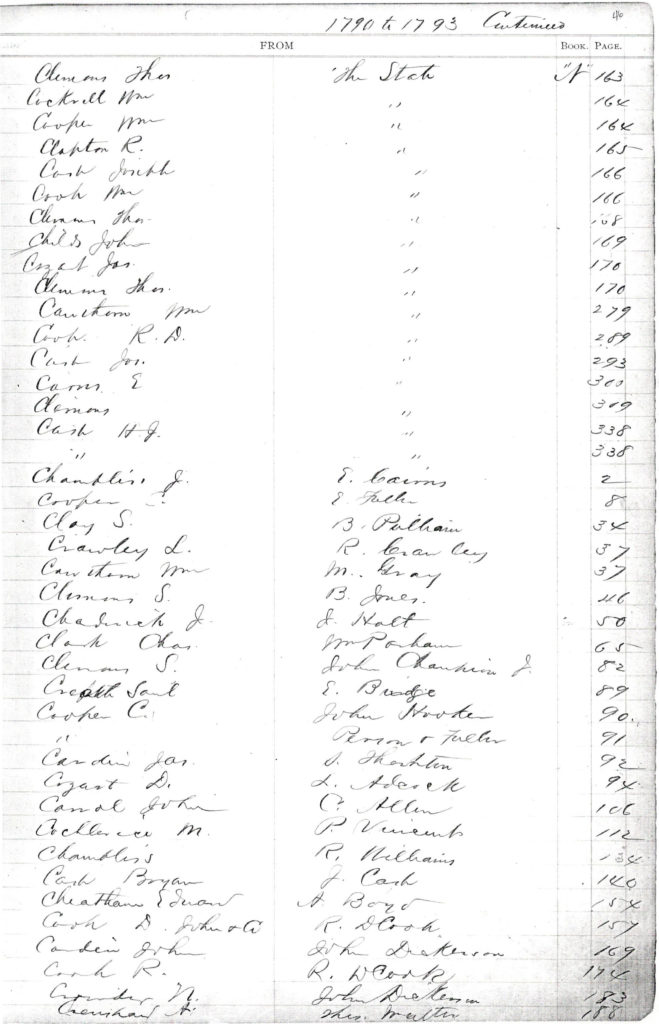 1790 to 1793 Continued
FROM BOOK. PAGE.
Clemons Thos The State "N" 163
Cockrell Wm " 164
Cooper Wm " 164
Clapton R. " 165
Cash Joseph " 166
Cook Wm " 166
Clemons Thos. " 168
Childs John " 169
Cozat Jas. " 170
Clemons Thos. " 170
Cawthorn Wm " 279
Cook. R. D. " 289
Cash Jos. " 293
Cairns E " 300
Clemons " 309
Cash H. J. " 338
" " 338
Chambliss J. E. Cairns 2
Cooper C. E Fuller 8
Clay S. B. Pulliam 34
Crawley L. R. Crawley 37
Cawthorn Wm M. Gray 37
Clemons S. B. Jones. 46
Chadwick J. J. Holt 50
Clark Chas. Wm Parham 65
Clemons S. John Champion J. 82
Saml E. Bridge 89
Cooper C. John Hooker 90.
" Person & Fuller 91
Cardin Jas. 92
Cozart D. L. Adcock 94
Carrol John C. Allen 106
M. P. Vincent 112
Chambliss R. Williams
Cash Bryan J. Cash 140
Cheatham Edward A Boyd 154
Cook D. John & C R. D Cook 157
Cardin John John Dickerson 169
Cook R. R. D Cook 174
Crowder N. John Dickerson 183
Crenshaw A. Thos. 188